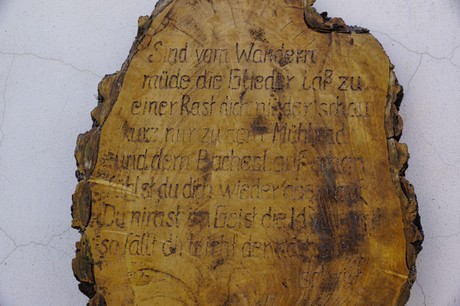 Sind vom Wandern
müde die Glieder laß zu
einer Rast dich nieder schau
kurz nur zu dem Mühlrad
und dem Bacherl
fühlst du dich wieder
Du nimst im Geist die
so fällt dir leicht der